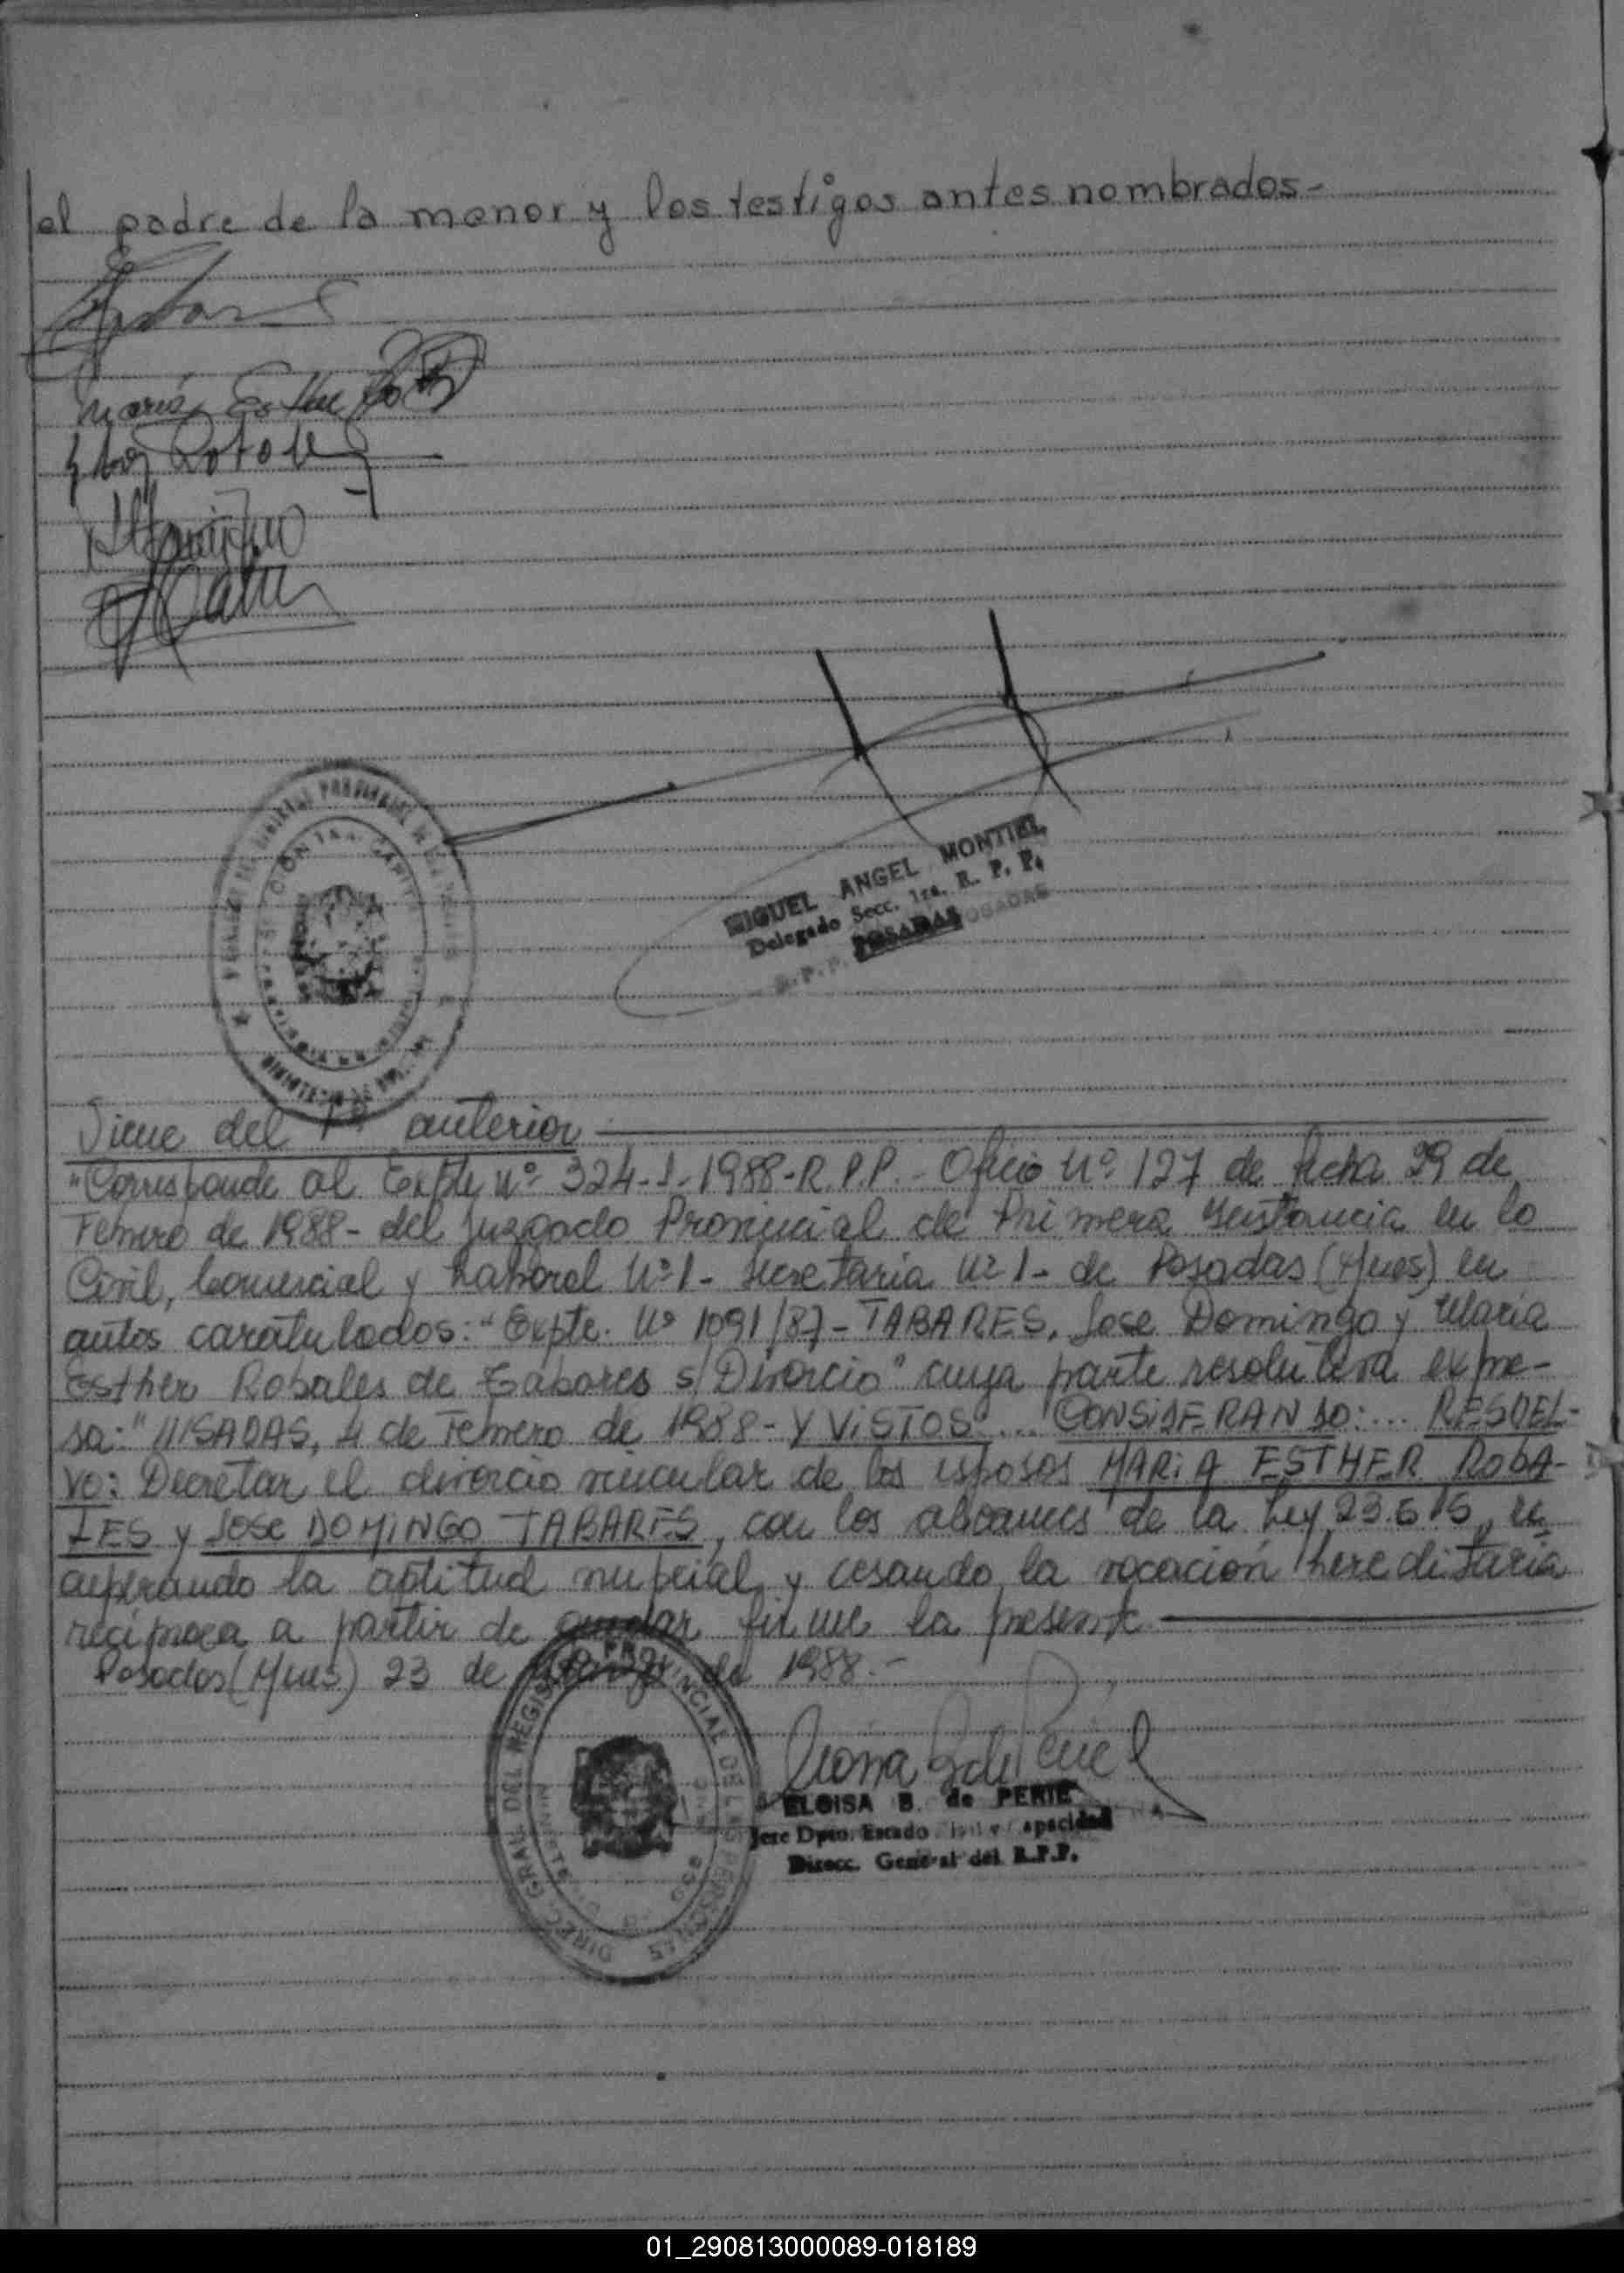 el padre de la menor y los testigos antes nombrados.-
María Esther
MIGUEL ANGEL MONTIEL
Delegado Secc. 1ra. R. P. P.
POSADAS
Viene del Fº anterior
"Corresponde al Expte nº 324-1-1988-R.P.P.- Oficio Nº 127 de fecha 29 de
Febrero de 1988- del Juzgado Provincial de Primera Instancia en lo
Civil, Comercial y Laboral Nº 1- Secretaría Nº 1- de Posadas (Mnes) en
autos caratulados: "Expte. Nº 1091/87- TABARES, Jose Domingo y María
Esther Robales de Tabares s/Divorcio" cuya parte resolutiva expre-
sa: "///SADAS, 4 de Febrero de 1988- Y VISTOS... CONSIDERANDO:... RESUEL-
VO: Decretar el divorcio vincular de los esposos MARIA ESTHER ROBA-
LES y JOSE DOMINGO TABARES, con los alcances de la Ley 23.515, re
cuperando la aptitud nupcial y cesando la vocación hereditaria
recíproca a partir de quedar firme la presente.
Posadas (Mnes) 23 de de 1988.-
DIREC. GRAL. DEL REGISTRO PROVINCIAL DE LAS PERSONAS
ELOISA B. de PERIE
Jefe Dpto. Estado Civil y Capacidad
Direcc. General del R.P.P.
01_290813000089-018189